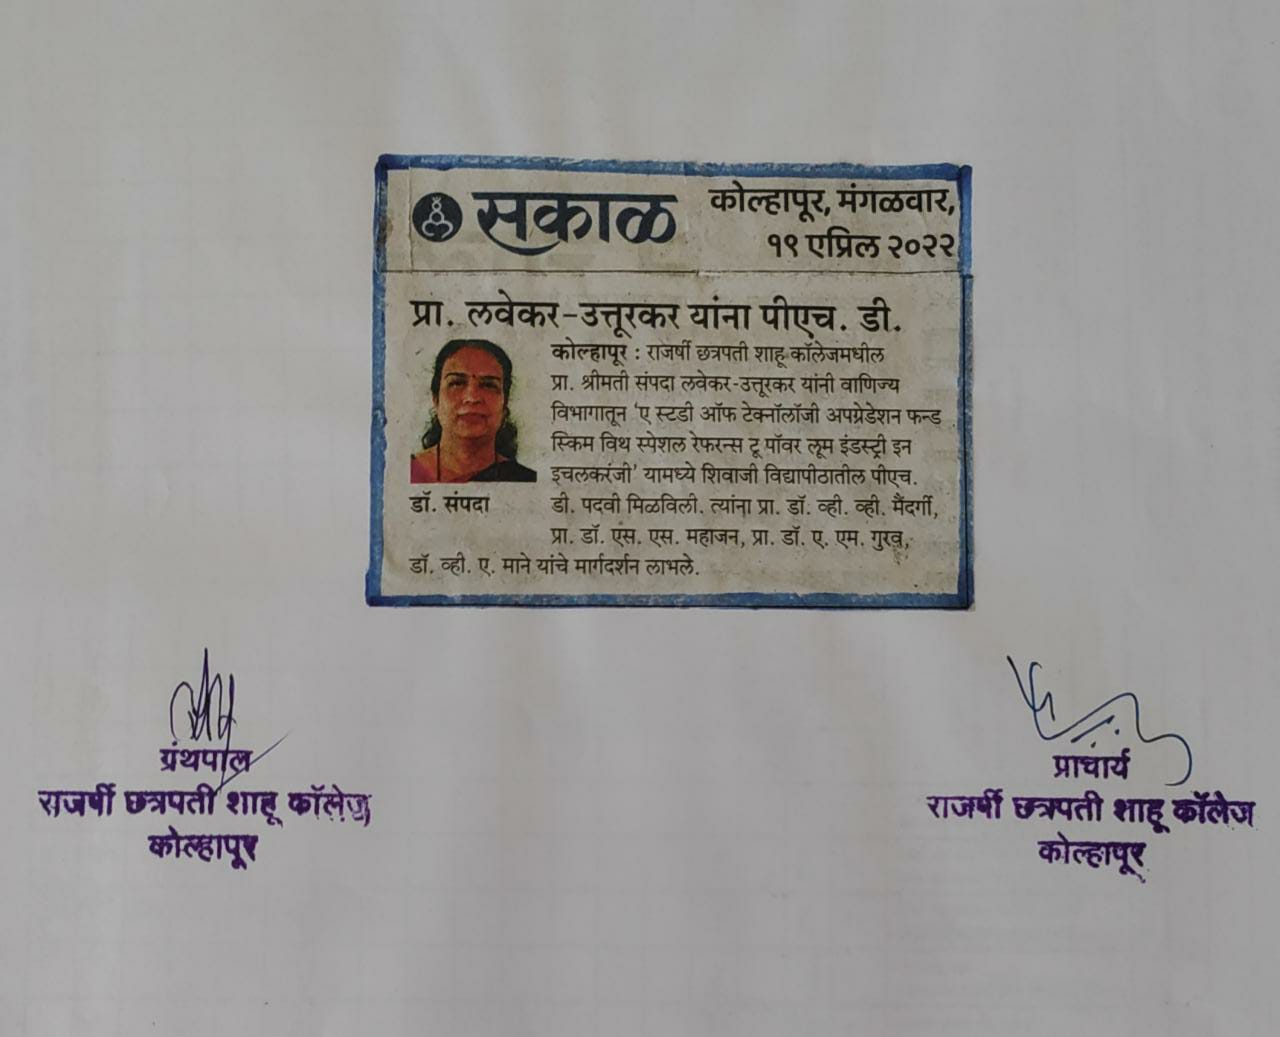 सकाळ
कोल्हापूर, मंगळवार,
१९ एप्रिल २०२२
प्रा. लवेकर-उत्तूरकर यांना पीएच. डी.
कोल्हापूर : राजर्षी छत्रपती शाहू कॉलेजमधील
प्रा. श्रीमती संपदा लवेकर-उत्तूरकर यांनी वाणिज्य
विभागातून ‘ए स्टडी ऑफ टेक्नॉलॉजी अपग्रेडेशन फन्ड
स्किम विथ स्पेशल रेफरन्स टू पॉवर लूम इंडस्ट्री इन
इचलकरंजी’ यामध्ये शिवाजी विद्यापीठातील पीएच.
डॉ. संपदा
डी. पदवी मिळविली. त्यांना प्रा. डॉ. व्ही. व्ही. मैंदर्गी,
प्रा. डॉ. एस. एस. महाजन, प्रा. डॉ. ए. एम. गुरव,
डॉ. व्ही. ए. माने यांचे मार्गदर्शन लाभले.
ग्रंथपाल
राजर्षी छत्रपती शाहू कॉलेज
कोल्हापूर
प्राचार्य
राजर्षी छत्रपती शाहू कॉलेज
कोल्हापूर